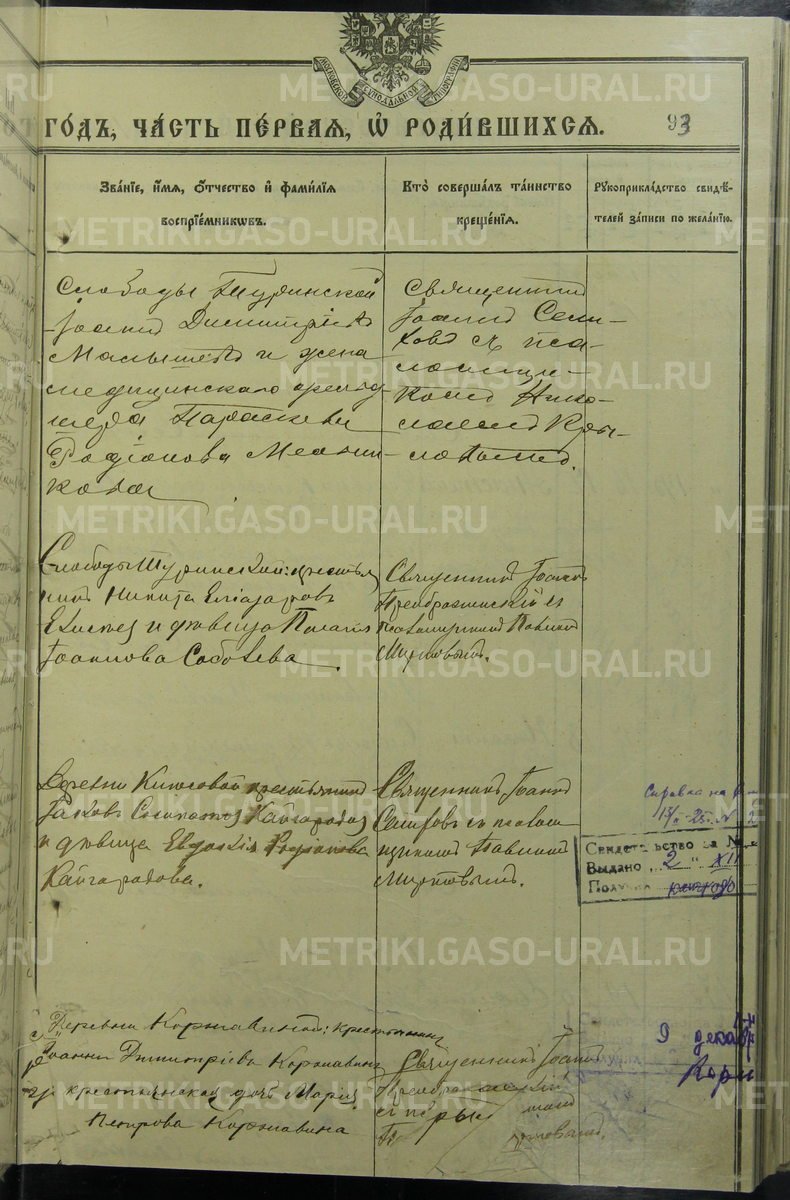 МОСКОВСКОЙ СѴНОДАЛЬНОЙ ТИПОГРАФІИ
ГО́ДЪ, ЧА́СТЬ ПЕ́РВАЯ, Ѡ РОДИ́ВШИХСЯ.
93
Зва́ніе, и́мя, ѻ́тчество и҆ фами́лія
воспріе́мникѡвъ.
Кто̀ соверша́лъ та́инство
креще́нія.
Рꙋкоприкла́дство свидѣ́-
телей за́писи по жела́нію.
Слободы Туринской
Іоаннъ Димитріевъ
Малышевъ и жена
медицинскаго фельд
шера Параскева
Родіонова Мельни
кова
Священникъ
Іоаннъ Сели-
ковъ съ пса-
ломщи-
комъ Нико-
лаемъ Кры-
ловымъ.
Слободы Туринской: крестья
нинъ Никита Елїазаровъ
и дѣвица Пелагія
Іоаннова Соболева.
Священникъ Іоаннъ
Преображенскій съ
псаломщикомъ Павломъ
Миртовымъ.
Деревни крестьянинъ
Іаковъ Кайгородовъ
и дѣвица Евдокія Родіонова
Кайгородова.
Священникъ Іоаннъ
съ псалом
щикомъ Павломъ
Миртовымъ.
Справка на
Свидетельство за №
Выдано „2“ XII
Деревни Коржавиной: крестьянинъ
Іоаннъ Димитріевъ Коржавинъ
и крестьянская дочь Марія
Петрова Коржавина
Священникъ Іоаннъ
Преображенскій
съ
9 дека
Корж
METRIKI.GASO-URAL.RU